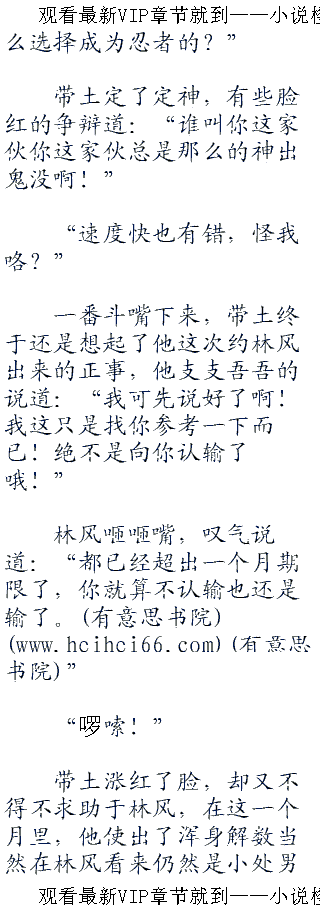 观看最新VIP章节就到——小说
么选择成为忍者的？”
带土定了定神，有些脸
红的争辩道：“谁叫你这家
伙你这家伙总是那么的神出
鬼没啊！”
“速度快也有错，怪我
咯？”
一番斗嘴下来，带土终
于还是想起了他这次约林风
出来的正事，他支支吾吾的
说道：“我可先说好了啊！
我这只是找你参考一下而
已！绝不是向你认输了
哦！”
林风咂咂嘴，叹气说
道：“都已经超出一个月期
限了，你就算不认输也还是
输了。(有意思书院)
(www.hcihci66.com)(有意思
书院)”
“啰嗦！”
带土涨红了脸，却又不
得不求助于林风，在这一个
月里，他使出了浑身解数当
然在林风看来仍然是小处男
观看最新VIP章节就到——小说